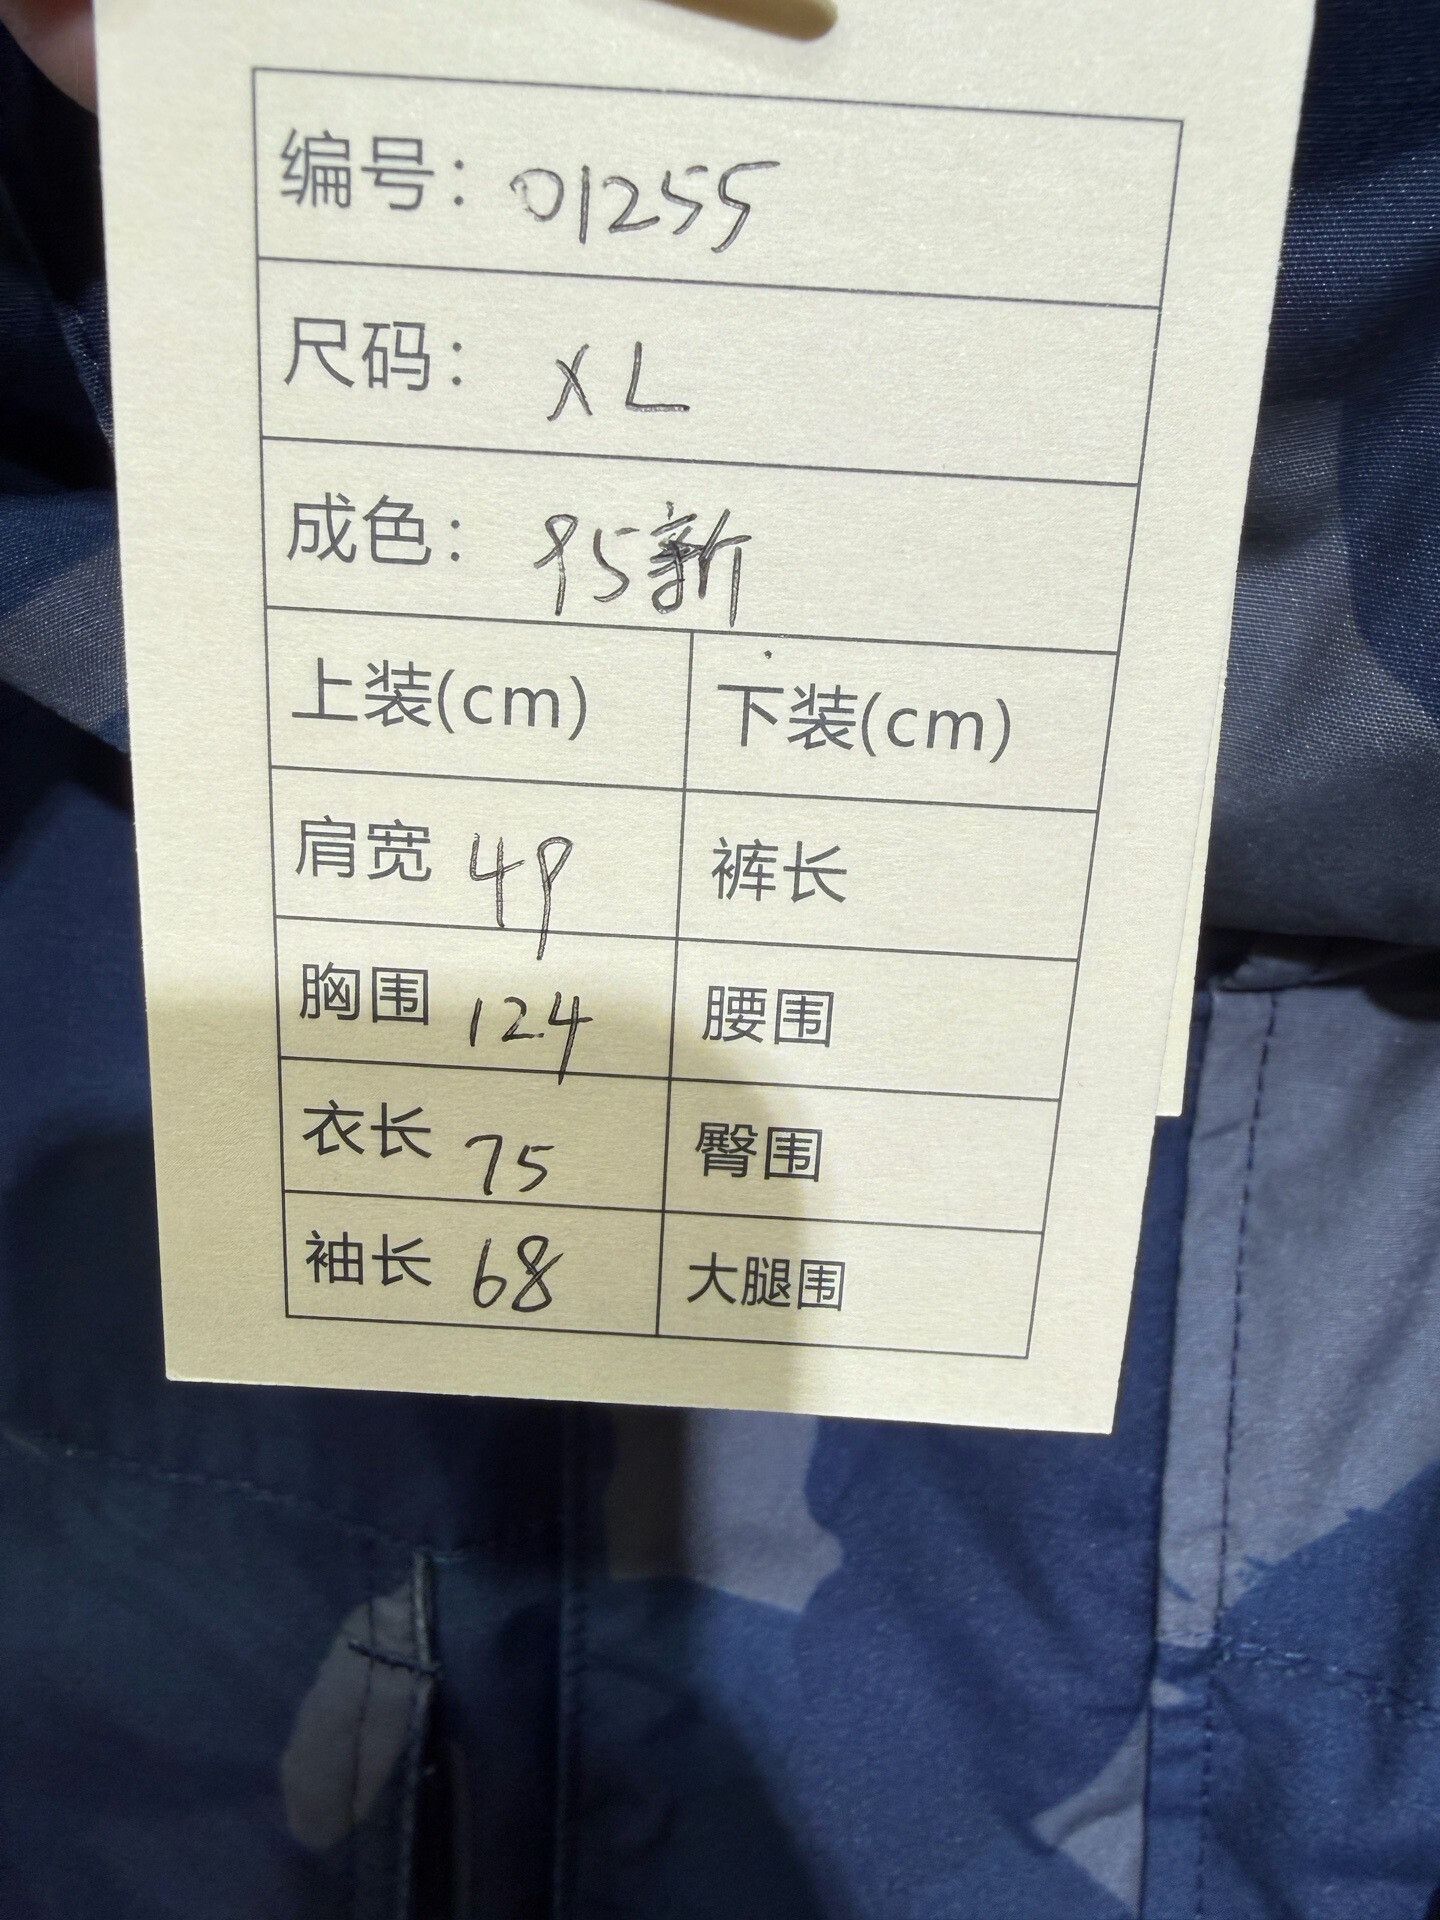 编号：01255
尺码：XL
成色：95新
上装(cm) 下装(cm)
肩宽 49 裤长
胸围 124 腰围
衣长 75 臀围
袖长 68 大腿围